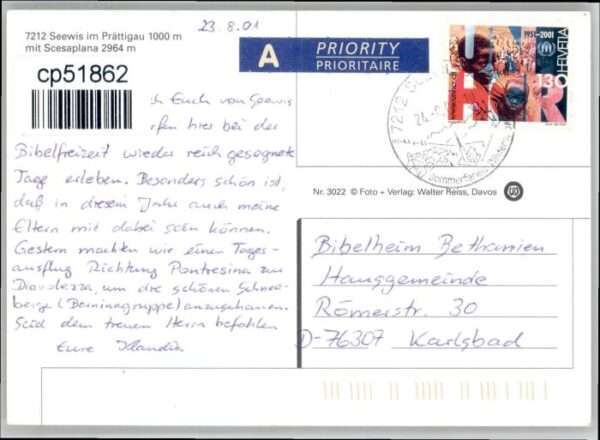 23.8.01
7212 Seewis im Prättigau 1000 m
mit Scesaplana 2964 m
cp51862
ch Euch von Seewis
rfen hier bei der
Bibelfreizeit wieder reich gesegnete
Tage erleben. Besonders schön ist,
daß in diesem Jahr auch meine
Eltern mit dabei sein können.
Gestern machten wir einen Tages-
ausflug Richtung Pontresina zur
Diavolezza, um die schönen Schnee-
berge (Berninagruppe) anzuschauen.
Seid dem treuen Herrn befohlen
Eure
A PRIORITY
PRIORITAIRE
1951-2001
HELVETIA
130
UNHCR
7212
Sommerferien
Nr. 3022 © Foto + Verlag: Walter Reiss, Davos
Bibelheim Bethanien
Hausgemeinde
Römerstr. 30
D-76307 Karlsbad